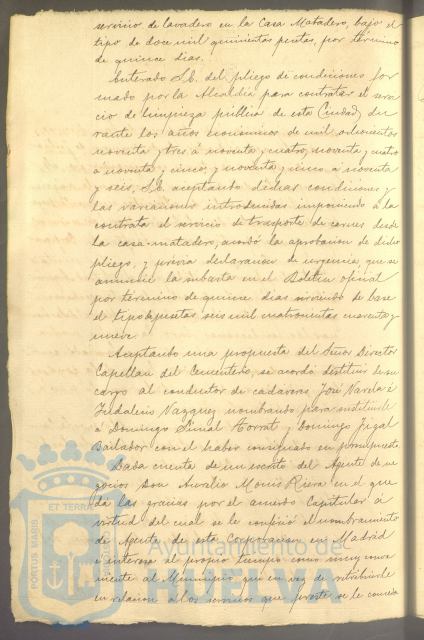 servicio de lavadero en la Casa Matadero, bajo el
tipo de doce mil quinientas pesetas, por término
de quince días.
Enterado S.E. del pliego de condiciones for
mado por la Alcaldía para contratar el servi
cio de limpieza pública de esta Ciudad, du
rante los años económicos de mil ochocientos
noventa y tres á noventa y cuatro, noventa y cuatro
á noventa y cinco y noventa y cinco á noventa
y seis, S.E. aceptando dichas condiciones y
las variaciones introducidas imponiendo á la
contrata el servicio de trasporte de carnes desde
la casa-matadero, acordó la aprobacion de dicho
pliego, y previa declaracion de urgencia que se
anuncie la subasta en el Boletin oficial
por término de quince dias sirviendo de base
el tipo de pesetas seis mil cuatrocientas cuarenta y
nueve.
Aceptando una propuesta del Señor Director
Capellan del Cementerio, se acordó destituir de su
cargo al conductor de cadáveres José Varela é
Indalecio Vazquez nombrando para sustituirle
á Domingo Torrat y Domingo
Bailador con el haber consignado en presupuesto
Dada cuenta de un escrito del Agente de ne
gocios Don Aurelio Riera en el que
da las gracias por el acuerdo Capitular en
virtud del cual se le confirió el nombramiento
de Agente de esta Corporacion en Madrid
é interesa al propio tiempo como muy conve
niente al Municipio que en vez de retribuirle
en relacion á los servicios que preste se le conceda
PORTUS MARIS ET TERRAE CUSTODIA
Ayuntamiento de
HUELVA